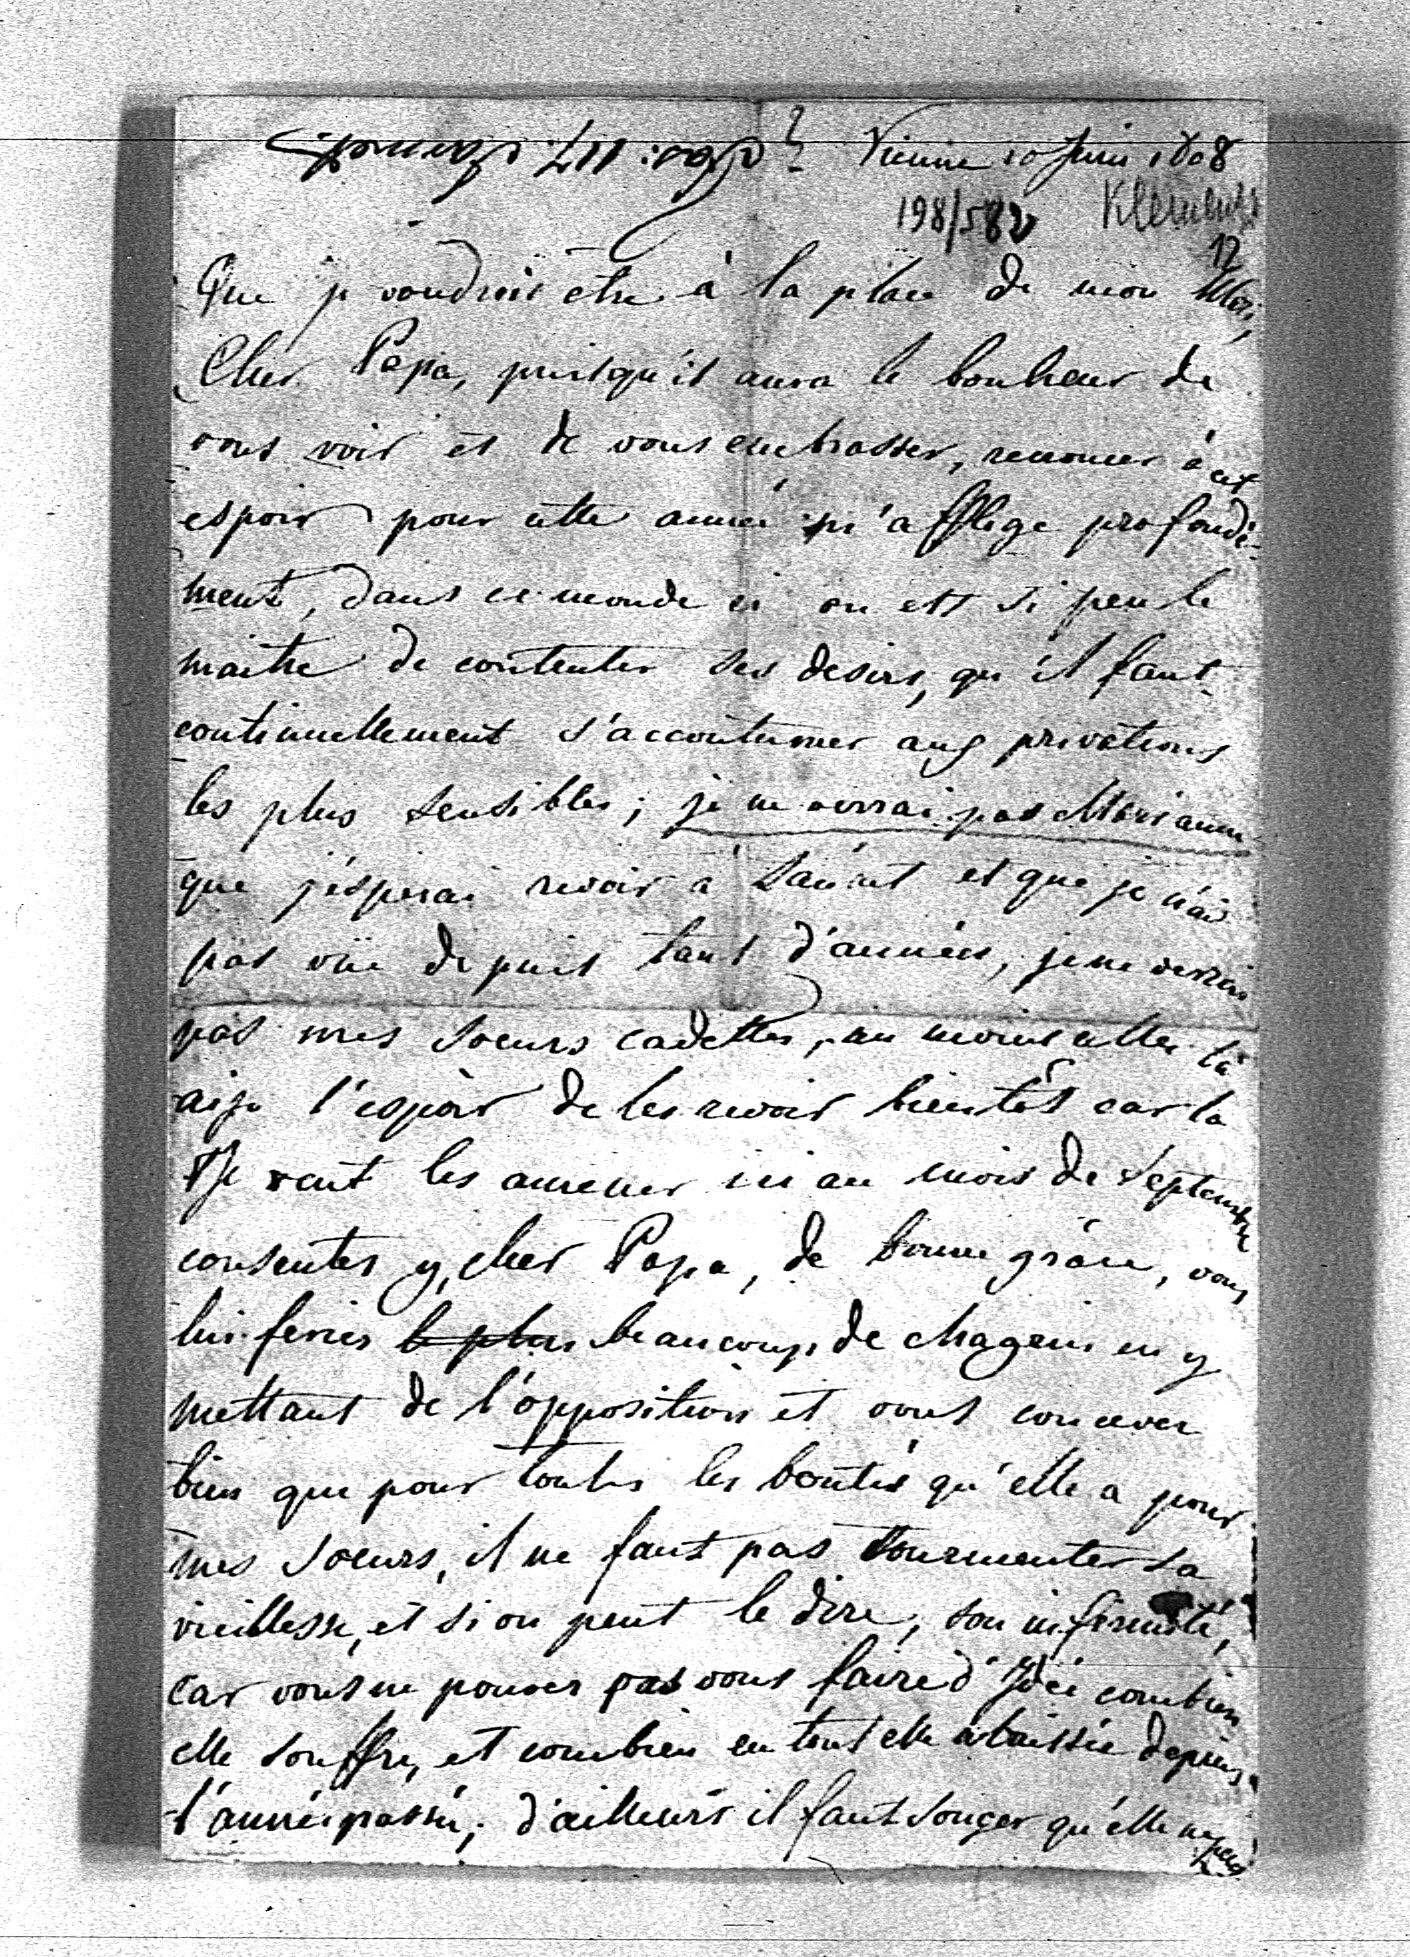 Vienne 10 Juin 1808
198/582
12
Que je voudrois etre à la place de mon Mari,
Cher Papa, puisqu'il aura le bonheur de
vous voir et de vous embrasser, renoncer à cet
espoir pour cette année m'afflige profondé-
ment, dans ce monde ci on est si peu le
maitre de contenter ses desirs, qu'il faut
continuellement s'accoutumer aux privations
les plus sensibles; je ne verrai pas Marianne
que j'ésperai revoir à et que je n'ai
pas vüe depuis tant d'années, je ne verrai
pas mes soeurs cadettes, au moins celles là
ai je l'espoir de les revoir bientôt car la
veut les amener ici au mois de Septembre
consentes y, cher Papa, de bonne grâce, vous
lui feries le plus beaucoup de chagrin en y
mettant de l'opposition et vous concever
bien que pour toutes les bontés qu'elle a pour
mes soeurs, il ne faut pas tourmenter sa
vieillesse, et si on peut le dire, son infirmité,
car vous ne pouves pas vous faire d'Idée combien
elle souffre, et combien en tout elle a baissée depuis
l'année passée; d'ailleurs il faut songer qu'elle ne peut